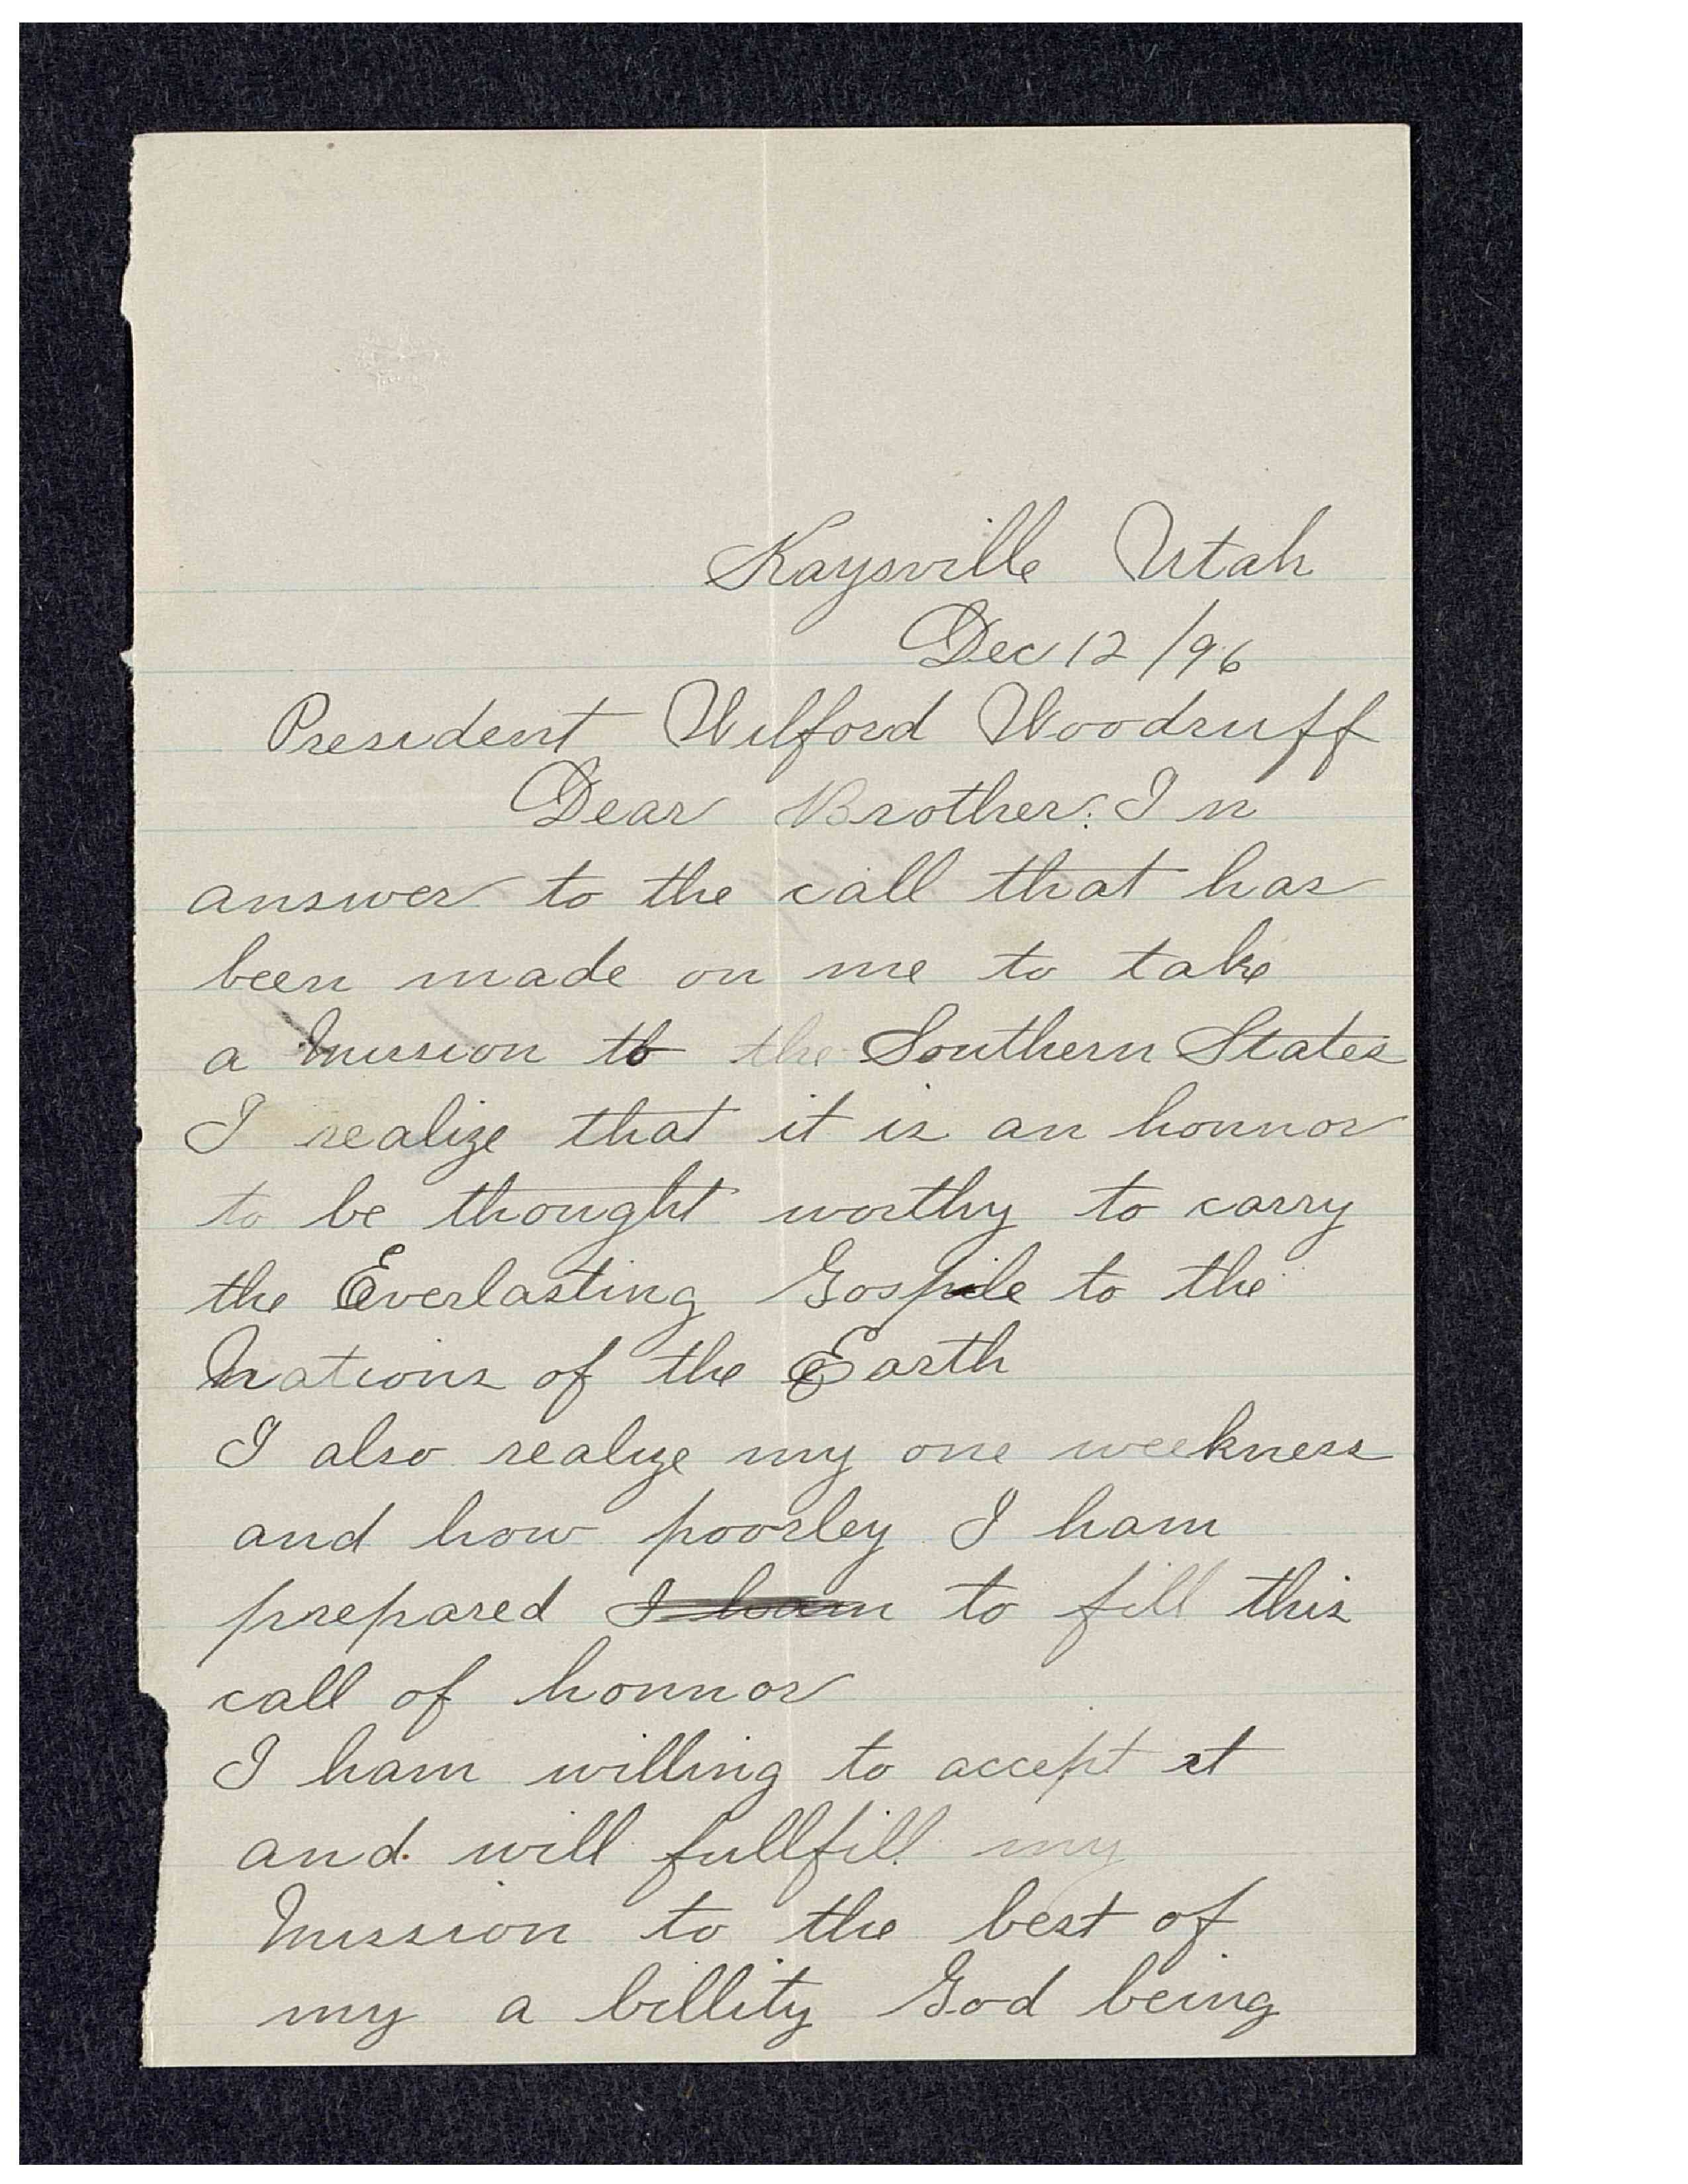 Kaysville Utah
Dec 12 /96
President Wilford Woodruff
Dear Brother: In
answer to the call that has
been made on me to take
a Mission to the Southern States
I realize that it is an honnor
to be thought worthy to carry
the Everlasting Gospile to the
Nations of the Earth
I also realize my one weekness
and how poorley I ham
prepared I ham to fill this
call of honnor
I ham willing to accept it
and will fullfill my
Mission to the best of
my a billity God being